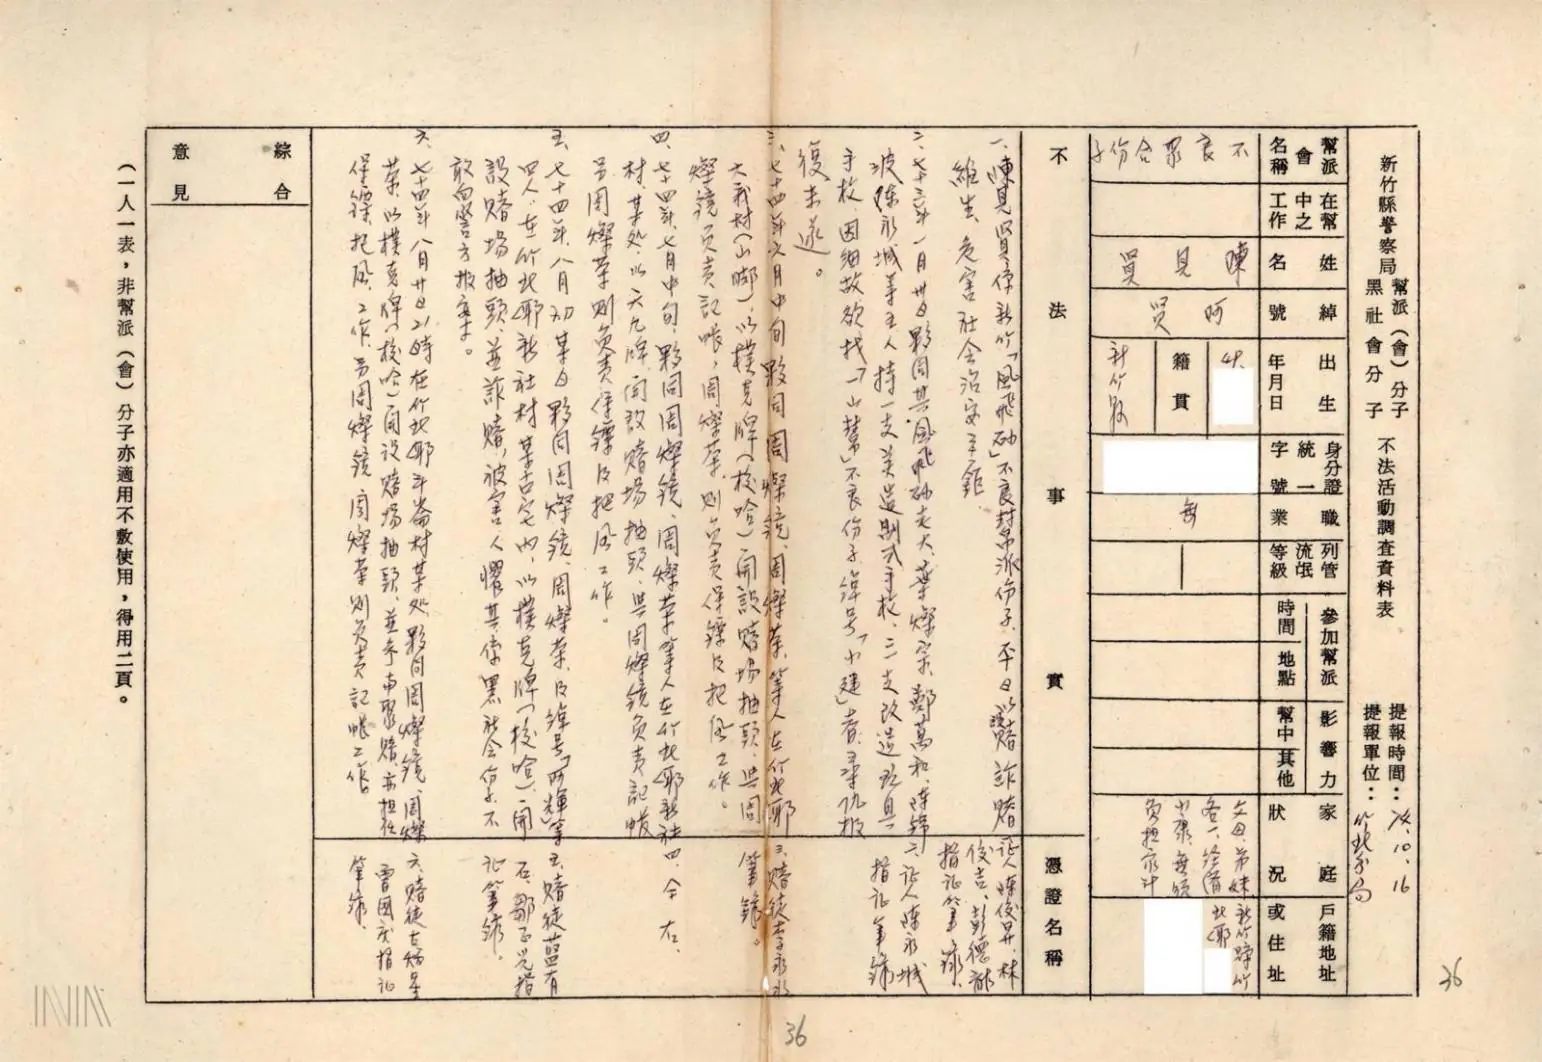 新竹縣警察局
幫派(會)分子
黑社會分子
不法活動調查資料表
提報時間:74.10.16
提報單位:竹北分局
幫派會名稱
不良聚合份子
在幫中之工作
姓名
陳見賢
綽號
阿賢
出生年月日
48.
籍貫
新竹縣
身分證統一字號
職業
無
列管流氓等級
參加幫派
時間
地點
影響力
幫中
其他
家庭狀況
父母、弟妹
各一、經濟
小康、無須
負担家計
戶籍地址或住址
新竹縣竹
北鄉
不法事實
憑證名稱
一、陳見賢係新竹「風飛砂」不良幫派份子、平日以賭詐賭
維生、危害社會治安至鉅
證人陳俊昇、林
俊吉、彭德龍
指証筆錄、
二、七十三年一月卅日夥同其風飛砂老大、葉燦宗、鄭萬和、陳錦
波、陳永城等五人持一支美造制式手枪、三支改造玩具
手枪因細故欲找「一山幫」不良份子綽号「小建」者尋仇报
復未遂。
二、证人陳永城
指证筆錄
三、七十四年六月中旬夥同周燦鏡、周燦榮、等人在竹北鄉
大義村(山脚)以撲克牌(梭哈)開設賭場抽頭、與周
燦鏡負責記帳,周燦榮、則負責保鏢及把風工作。
三、賭徒李永水
筆錄。
四、七十四年七月中旬夥同周燦鏡、周燦榮等人在竹北鄉新社
村、某处、以六九牌開設賭場抽頭、與周燦鏡負責記帳
另周燦榮則負責保鏢及把風工作。
四、仝右、
五、七十四年、八月初某日夥同周燦鏡、周燦榮、及綽号「阿輝」等
四人、在竹北鄉新社村某古宅內、以撲克牌(梭哈)、開
設賭場抽頭、並詐賭,被害人懼其係黑社会份子不
敢向警方报案。
五、賭徒藍有
石、鄒正光指
证筆錄。
六、七十四年八月廿日21時在竹北鄉斗崙村某处夥同周燦鏡、周燦
榮、以撲克牌(梭哈)開設賭場抽頭、並予南聚賭、亦担任
保鏢把風、工作、另周燦鏡周燦榮則負責記帳工作
曹國慶指证
筆錄、
綜合意見
(一人一表,非幫派(會)分子亦適用不敷使用,得用二頁。
36
36